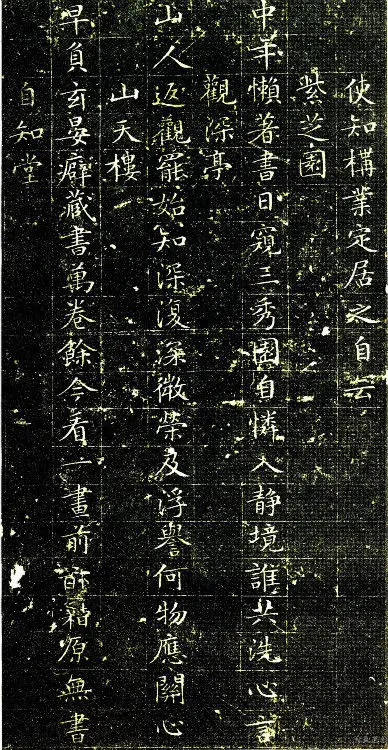 使知構業定居之自云
紫芝園
中年懶著書日窺三秀園自憐入静境誰共洗心言
觀深亭
山人返觀罷始知深復深微榮及浮譽何物應關心
山天樓
早負玄晏癖藏書萬卷餘今看一畫前原無書
自知堂